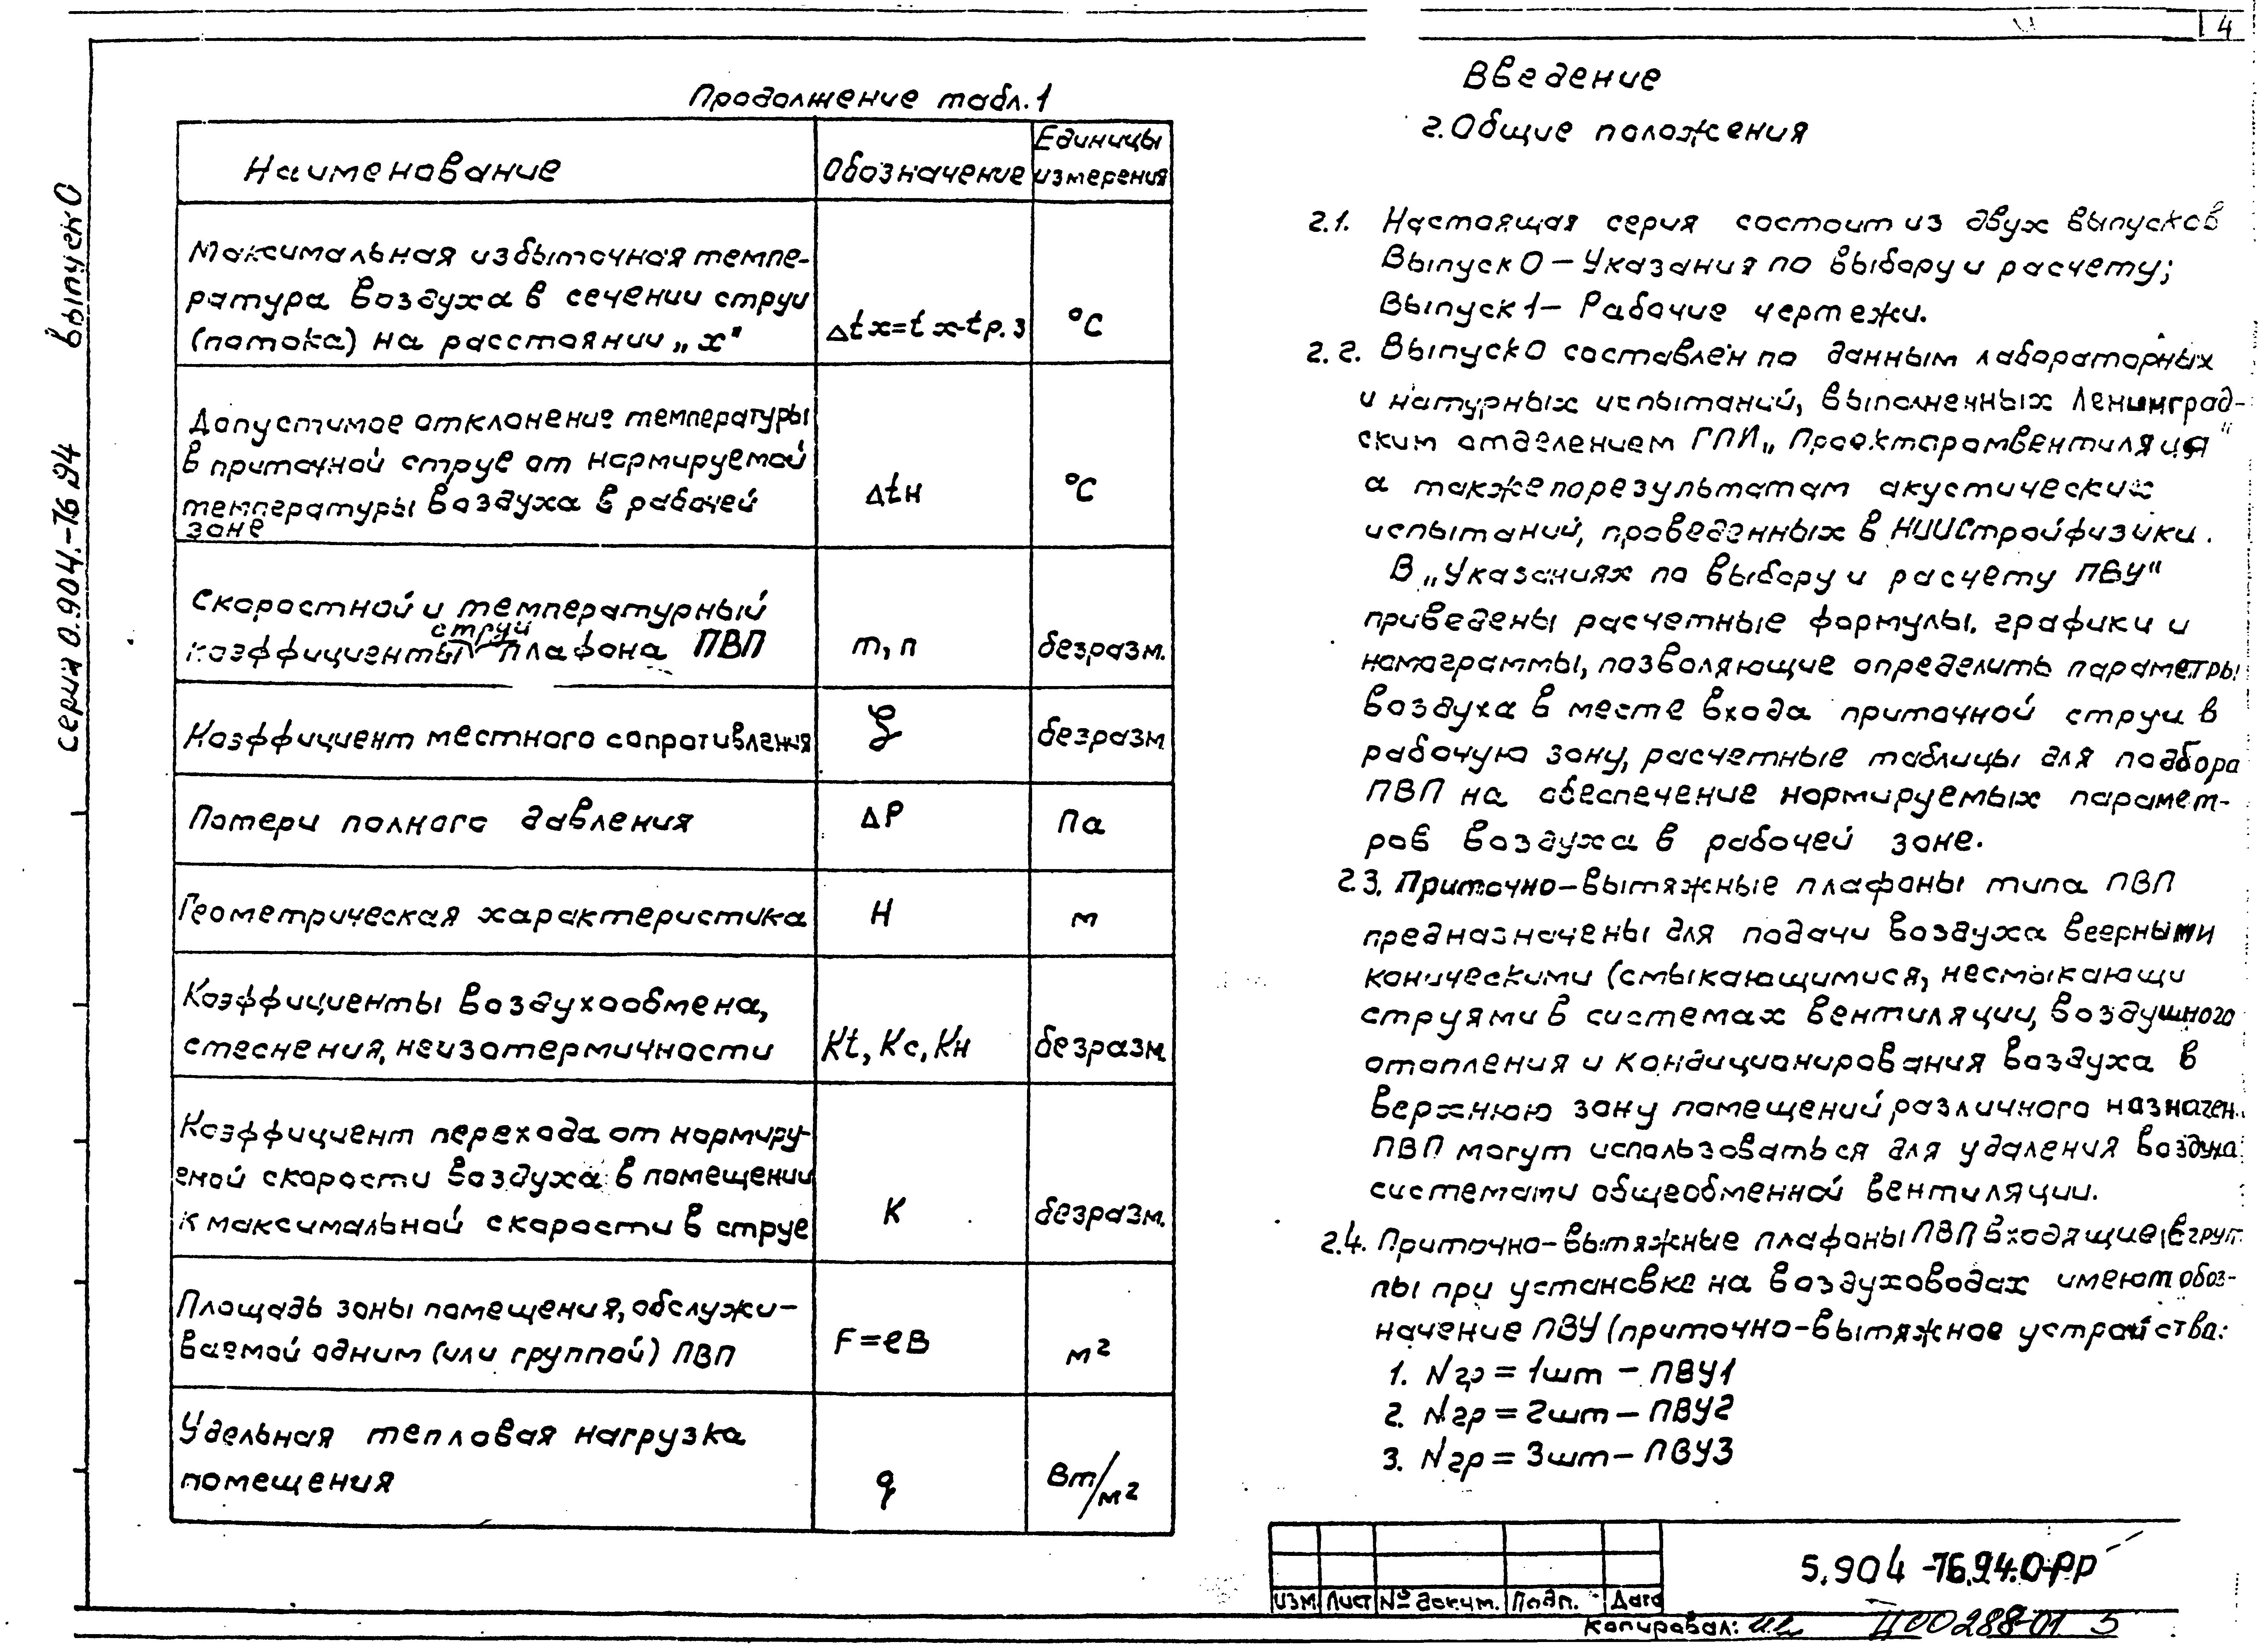 4
серия 0.904.-76 94 выпуск 0
Продолжение табл.1
Наименование
Обозначение
Единицы
измерения
Максимальная избыточная темпе-
ратура воздуха в сечении струи
(потока) на расстоянии „х"
Δtx=tx-tр.з
°С
Допустимое отклонение температуры
в приточной струе от нормируемой
температуры воздуха в рабочей
зоне
Δtн
°С
Скоростной и температурный
струй
коэффициенты плафона ПВП
m, n
безразм.
Коэффициент местного сопротивления
ξ
безразм
Потери полного давления
ΔP
Па
Геометрическая характеристика
Н
м
Коэффициенты воздухообмена,
стеснения, неизотермичности
Kt, Kc, Kн
безразм
Коэффициент перехода от нормиру-
емой скорости воздуха в помещении
к максимальной скорости в струе
К
безразм.
Площадь зоны помещения, обслужи-
ваемой одним (или группой) ПВП
F=eB
м²
Удельная тепловая нагрузка
помещения
q
Вт/м²
Введение
2. Общие положения
2.1. Настоящая серия состоит из двух выпусков
Выпуск 0 – Указания по выбору и расчету;
Выпуск 1 – Рабочие чертежи.
2.2. Выпуск 0 составлен по данным лабораторных
и натурных испытаний, выполненных Ленинград-
ским отделением ГПИ „Проектпромвентиляция"
а также по результатам акустических
испытаний, проведенных в НИИСтройфизики.
В „Указаниях по выбору и расчету ПВУ"
приведены расчетные формулы, графики и
номограммы, позволяющие определить параметры
воздуха в месте входа приточной струи в
рабочую зону, расчетные таблицы для подбора
ПВП на обеспечение нормируемых парамет-
ров воздуха в рабочей зоне.
2.3. Приточно-вытяжные плафоны типа ПВП
предназначены для подачи воздуха веерными
коническими (смыкающимися, несмыкающи
струями в системах вентиляции, воздушного
отопления и кондиционирования воздуха в
верхнюю зону помещений различного назначен.
ПВП могут использоваться для удаления воздуха
системами общеобменной вентиляции.
2.4. Приточно-вытяжные плафоны ПВП входящие в груп
пы при установке на воздуховодах имеют обоз-
начение ПВУ (приточно-вытяжное устройства:
1. Nгр = 1шт – ПВУ1
2. Nгр = 2шт – ПВУ2
3. Nгр = 3шт – ПВУ3
Изм Лист № докум. Подп. Дата
5.904-76.94.0-РР
Копировал: Ц00288-01 5